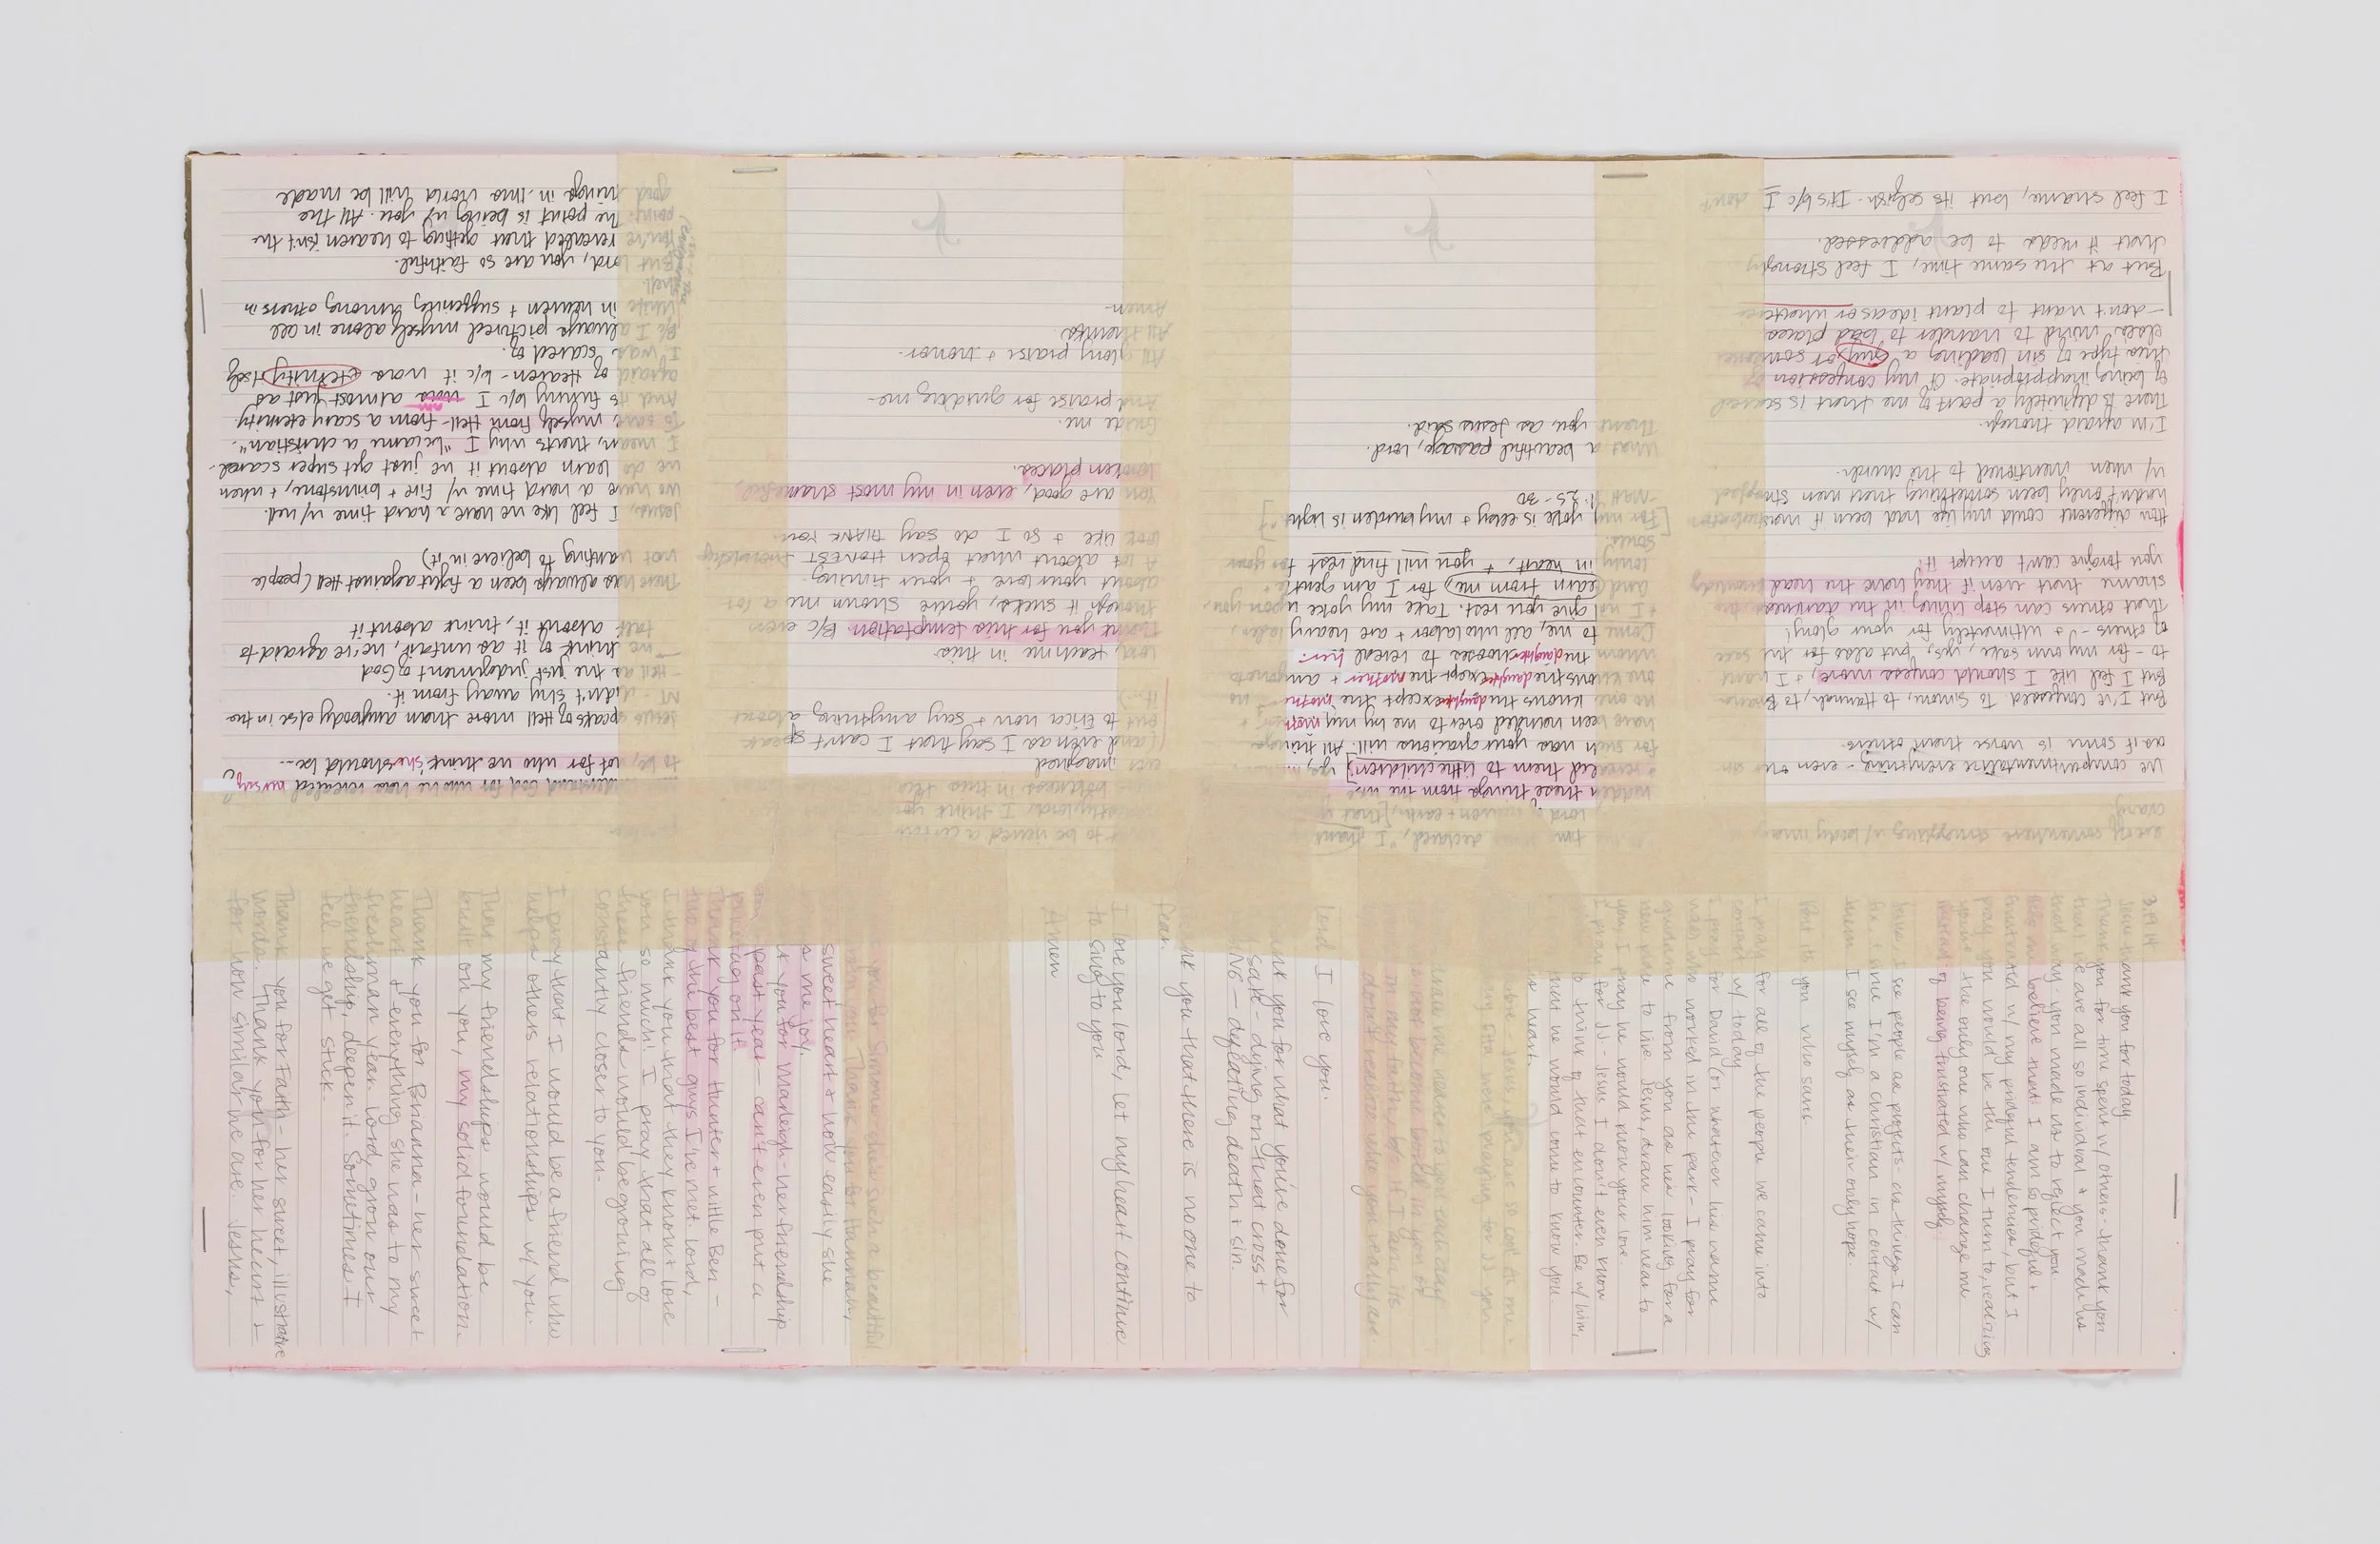 I feel shame, but its selfish. Its b/c I don't
But at the same time, I feel strongly
that it needs to be addressed.
I'm afraid though.
There is definitely a part of me that is scared
of being inappropriate. Of my confession of
this type of sin leading a guy or someone
else's mind to wander to bad places
- don't want to plant ideas or whatever
How different could my life had been if masturbation
hadn't only been something that men struggled
w/ when mentioned to the church.
But I've confessed. To Simone, to Hannah, to Briana
But I feel like I should confess more, + I want
to - for my own sake, yes, but also for the sake
of others - + ultimately for your glory!
That others can stop living in the darkness, the
shame that even if they have the head knowledge
you forgive can't accept it.
We compartmentalize everything - even our sin
as if some is worse than others.
crazy
declared, "I thank
Lord of heaven + earth, [that]
hidden these things from the wise
revealed them to little children] yes,
for such was your gracious will. All things
have been handed over to me by my mother +
no one knows the daughter except the mother no
one knows the daughter except the mother + anyone to
whom the daughter chooses to reveal her.
Come to me, all who labor + are heavy laden,
+ I will give you rest. Take my yoke upon you,
and learn from me, for I am gentle +
lowly in heart, + you will find rest for your
souls.
[For my yoke is easy + my burden is light."]
-Matt 11:25-30
What a beautiful passage, Lord.
Thank you, as Jesus said.
ever imagined
(and even as I say that I can't speak
but to Erica now + say anything about
it...)
Lord, teach me in this
Thank you for this temptation B/c even
though it sucks, you've shown me a lot
about your love + your timing.
A lot about what open HONEST friendship
look like + so I do say THANK YOU.
You are good, even in my most shameful,
broken places.
Guide me.
And praise for guiding me-
All glory praise + honor.
All thanks.
Amen-
understand God for who he has revealed herself
to be, not for who we think she should be--
Jesus speaks of Hell more than anybody else in the
NT - didn't shy away from it.
- Hell as the just judgement of God
- we think of it as unfair, we're afraid to
talk about it, think about it
There has always been a fight against Hell (people
not wanting to believe in it)
Jesus, I feel like we have a hard time w/ hell.
We have a hard time w/ fire + brimstone, + when
we do learn about it we just get super scared.
I mean, thats why I "became a christian".
To save myself from Hell - from a scary eternity.
And its funny b/c I was almost just as
afraid of Heaven - b/c it was eternity itself
I was scared of.
B/c I always pictured myself alone in all
white in heaven + suffering among others in
hell.
But Lord, you are so faithful.
You've revealed that getting to heaven isn't the
point. The point is being w/ you. All the
good things in this world will be made
3.19.14
Jesus thank you for today
Thank you for time spent w/ others - thank you
that we are all so individual + you made us
that way you made us to reflect you
Help me believe that. I am so prideful +
frustrated w/ my prideful tendencies, but I
pray you would be the one I turn to, realizing
you're the only one who can change me
instead of being frustrated w/ myself.
Jesus, I see people as projects - as things I can
fix, since I'm a christian in contact w/
them I see myself as their only hope.
But its you who saves.
I pray for all of the people we came into
contact w/ today
I pray for David (or whatever his name
was) who worked in the park - I pray for
guidance from you as he's looking for a
new place to live. Jesus, draw him near to
you, I pray he would know your love.
I pray for JJ - Jesus I don't even know
what to think of that encounter. Be w/ him,
that he would come to know you.
his heart.
draw me nearer to you each day
in my faith, b/c if I am its
don't realize who you really are.
Lord I love you.
Thank you for what you've done for
sake - dying on that cross +
- defeating death + sin.
Thank you that there is no one to
fear.
I love you Lord, let my heart continue
to sing to you
Amen
Thank you for Simone - she's such a beautiful
Thank you for Hannah,
sweet heart + how easily she
me joy.
Thank you for Marleigh - her friendship
past year - can't even put a
price tag on it.
Thank you for Hunter + little Ben -
two of the best guys I've met. Lord,
I thank you that they know + love
you so much! I pray that all of
these friends would be growing
constantly closer to you.
I pray that I would be a friend who
helps others relationships w/ you.
That my friendships would be
built on you, my solid foundation.
Thank you for Brianna - her sweet
heart + everything she was to my
freshman year. Lord, grow our
friendship, deepen it. Sometimes I
feel we get stuck.
Thank you for Faith - her sweet, illustrative
words. Thank you for her heart +
for how similar we are. Jesus,